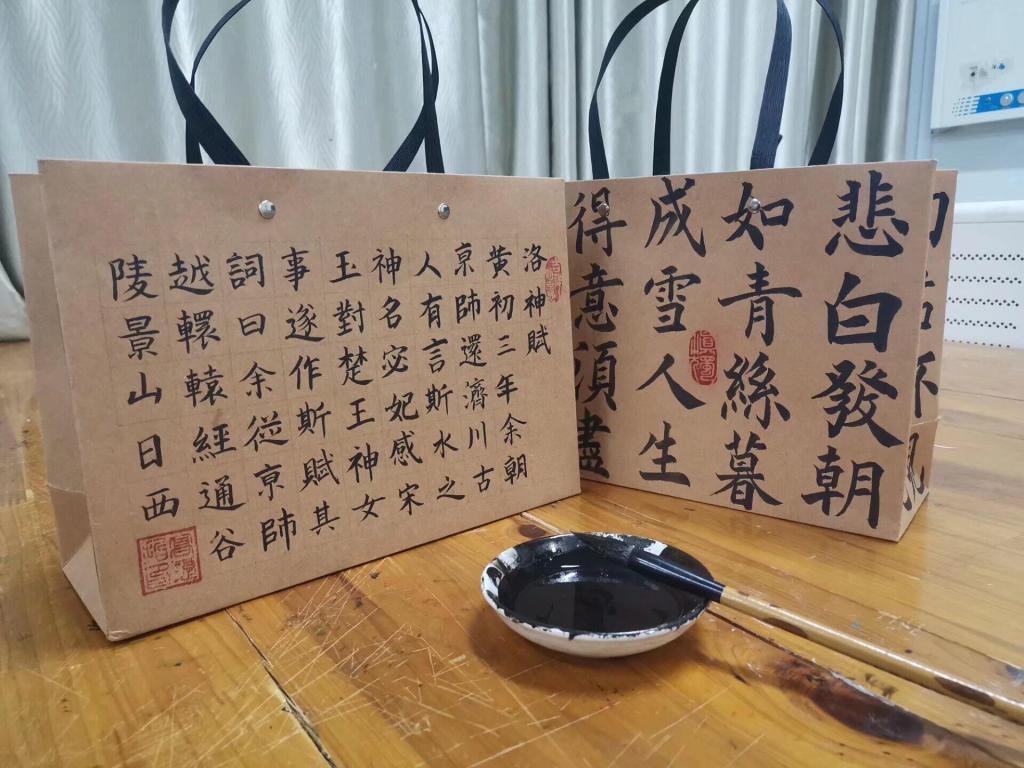 洛神賦
黃初三年余朝
亰師還濟川古
人有言斯水之
神名宓妃感宋
玉對楚王神女
事遂作斯賦其
詞曰余從亰師
越轘轅經通谷
陵景山日西
悲白發朝
如青絲暮
成雪人生
得意須盡